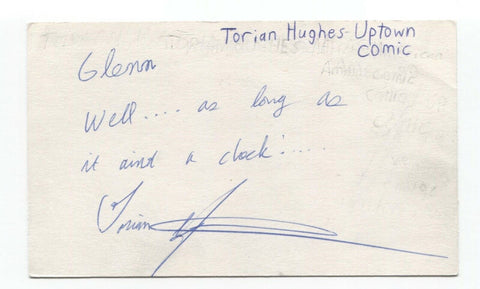 Torian Hughes-Uptown
Comic
Glenn
Well.... as long as
it aind a clock!....
Torian